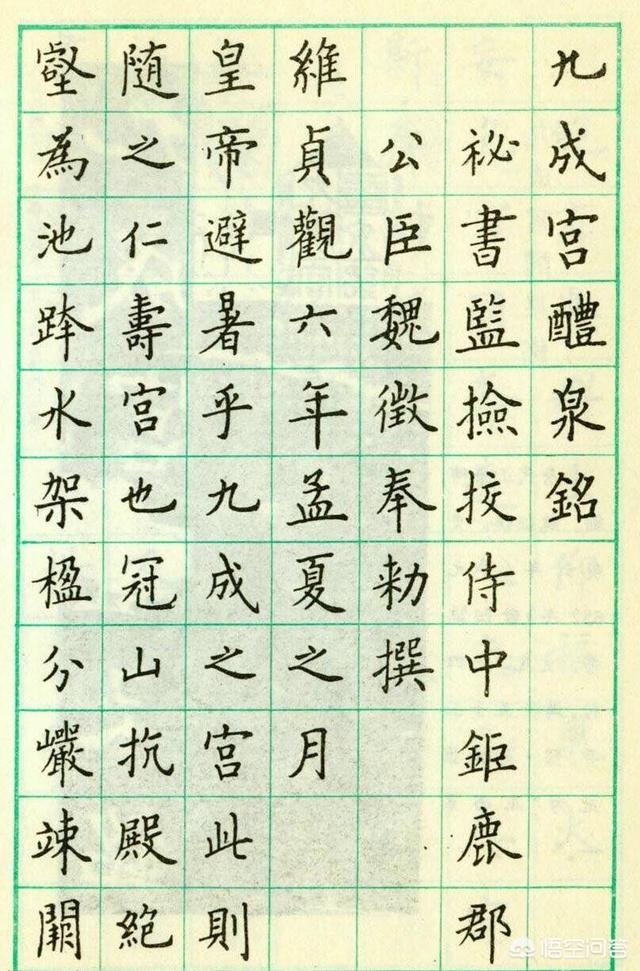 九成宫醴泉銘
祕書監撿挍侍中鉅鹿郡
公臣魏徵奉勑撰
維貞觀六年孟夏之月
皇帝避暑乎九成之宫此則
随之仁壽宫也冠山抗殿絶
壑為池跨水架楹分巖竦闕
悟空问答